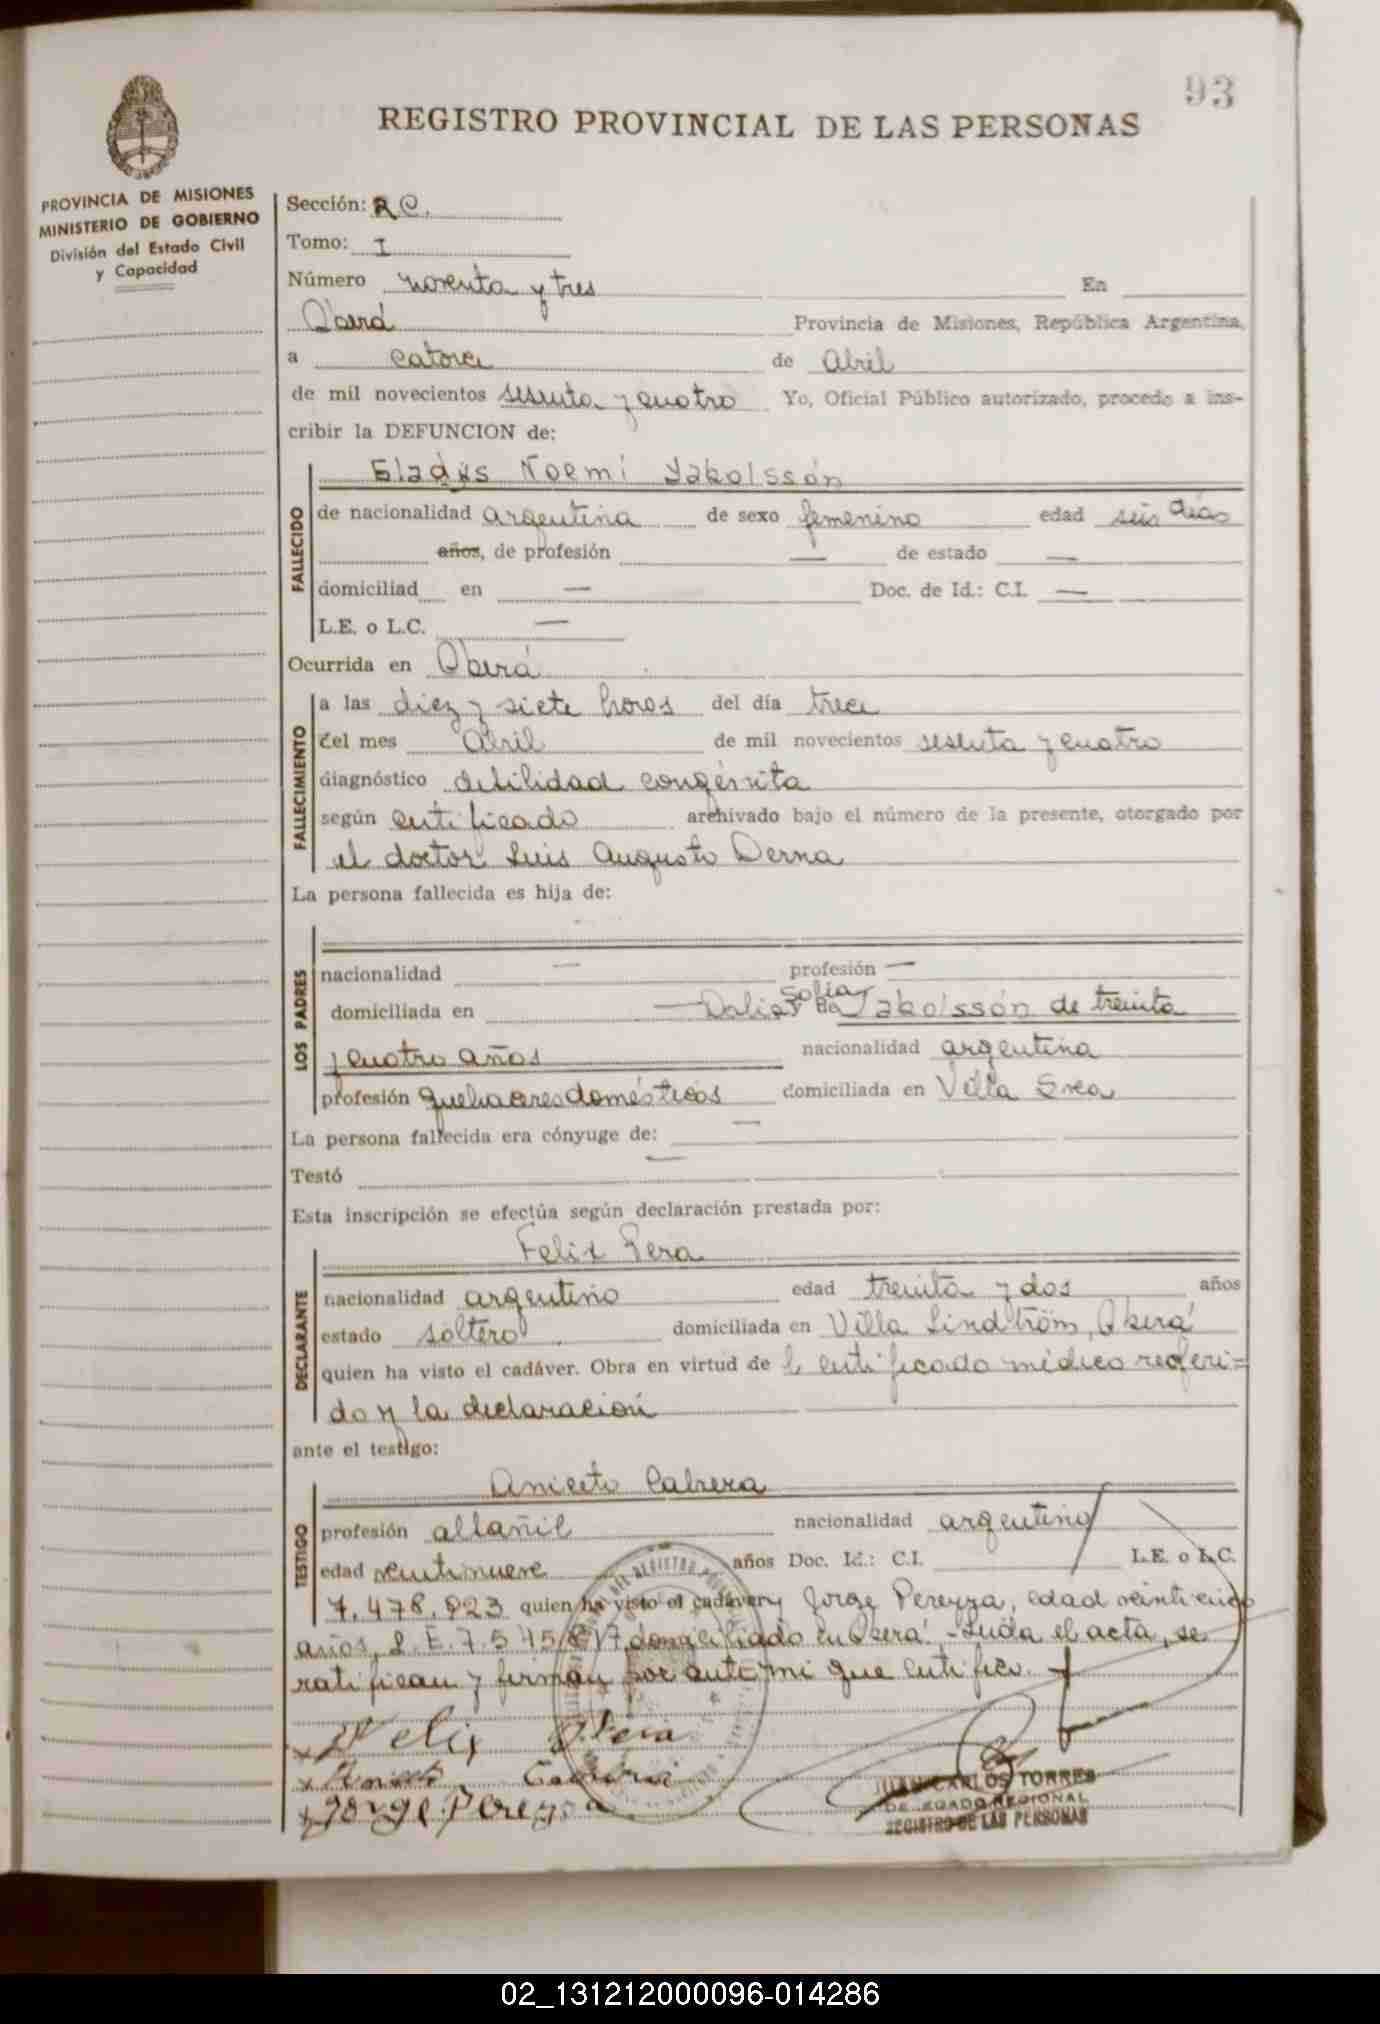 93
REGISTRO PROVINCIAL DE LAS PERSONAS
PROVINCIA DE MISIONES
MINISTERIO DE GOBIERNO
División del Estado Civil
y Capacidad
Sección: R C.
Tomo: I
Número noventa y tres En
Oberá Provincia de Misiones, República Argentina,
a catorce de Abril
de mil novecientos sesenta y cuatro Yo, Oficial Público autorizado, procedo a ins-
cribir la DEFUNCION de:
Gladys Noemí Jakolssón
FALLECIDO
de nacionalidad argentina de sexo femenino edad seis días
años, de profesión — de estado —
domiciliad en — Doc. de Id.: C.I. —
L.E. o L.C. —
Ocurrida en Oberá
FALLECIMIENTO
a las diez y siete horas del día trece
del mes Abril de mil novecientos sesenta y cuatro
diagnóstico debilidad congénita
según certificado archivado bajo el número de la presente, otorgado por
el doctor Luis Augusto Derna
La persona fallecida es hija de:
LOS PADRES
nacionalidad — profesión —
domiciliada en — Sofía Jakolssón de treinta
y cuatro años nacionalidad argentina
profesión quehaceres domésticos domiciliada en Villa
La persona fallecida era cónyuge de: —
Testó —
Esta inscripción se efectúa según declaración prestada por:
Felix Pera
DECLARANTE
nacionalidad argentino edad treinta y dos años
estado soltero domiciliada en Villa Lindström, Oberá
quien ha visto el cadáver. Obra en virtud de l certificado médico referi=
do y la declaración
ante el testigo:
Aniceto Cabrera
TESTIGO
profesión albañil nacionalidad argentino
edad veintinueve años Doc. Id.: C.I. L.E. o L.C.
7.478.923 quien ha visto el cadáver y Jorge Pereyra, edad veinticinco
años, L.E. 7.545. domiciliado en Oberá.- Leída el acta, se
ratifican y firman por ante mi que certifico.
Felix Pera
Aniceto Cabrera
Jorge Pereyra
JUAN CARLOS TORRES
DELEGADO REGIONAL
REGISTRO DE LAS PERSONAS
02_131212000096-014286